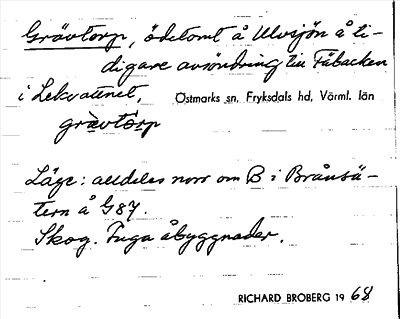 Grävtorp, ödetomt å Ulvsjön å ti-
digare avsöndring till Fäbacken
i Lekvattnet, Östmarks sn, Fryksdals hd, Värml. län
grävtårp
Läge: alldeles norr om B i Brånsä-
tern å G87.
Skog. Inga åbyggnader.
RICHARD BROBERG 1968